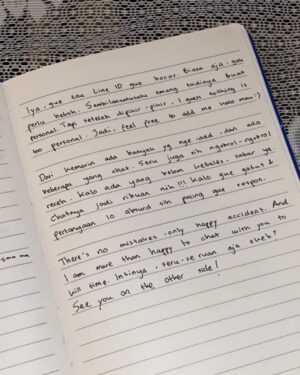 Iya, gue tau Line ID gue bocor. Biasa aja, gak
perlu heboh. Sembilansatusatu emang tadinya buat
personal. Tapi setelah dipikir-pikir, I guess nothing is
too personal. Jadi, feel free to add me kalo mau :)
Dari kemarin ada banyak yg nge-add, dan ada
beberapa yang chat. Seru juga sih ngobrol-ngobrol
receh. Kalo ada yang belom kebales, sabar ya.
chatnya jadi ribuan nih!!! Kalo gue gabut &
pertanyaan lo absurd sih paling gue respon.
There's no mistakes, only happy accident. And
I am more than happy to chat with you to
kill time. Intinya, seru-seruan aja okeh?
See you on the other side!